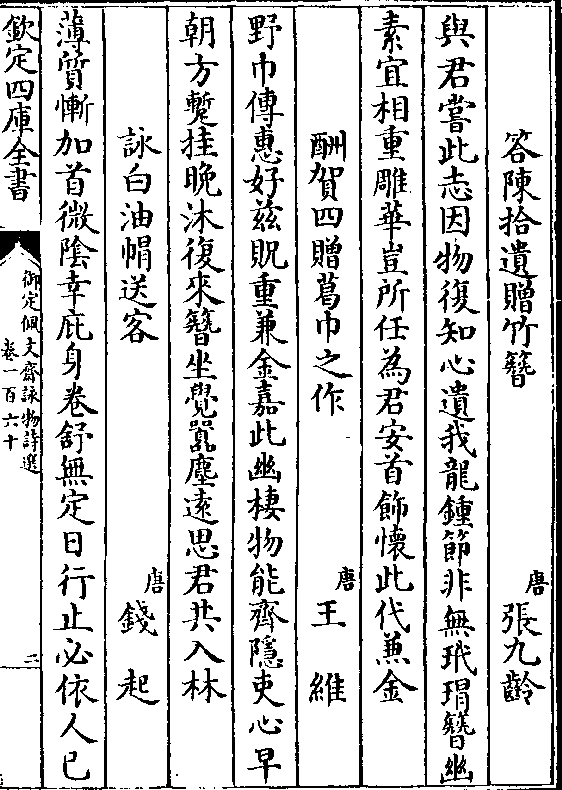 答陳拾遺贈竹簪 唐 張九齡
與君嘗此志因物復知心遺我龍鍾節非無玳瑁簪幽
素宜相重雕華豈所任為君安首飾懷此代兼金
酬賀四贈葛巾之作 唐 王維
野巾傳惠好兹貺重兼金嘉此幽棲物能齊隱吏心早
朝方蹔挂晚沐復來簪坐覺囂塵遠思君共入林
詠白油帽送客 唐 錢起
薄質慚加首微陰幸庇身卷舒無定日行止必依人已
欽定四庫全書
御定佩文齋詠物詩選
卷一百六十
三